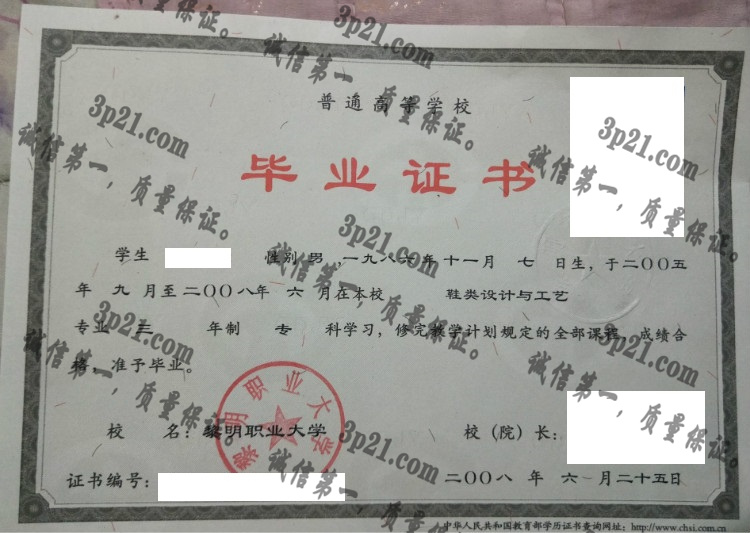 普通高等学校
毕业证书
学生 性别 男 ,一九八六年 十一月 七 日生，于二〇〇五
年 九 月至二〇〇八年 六 月在本校 鞋类设计与工艺
专业 三 年制 专 科学习，修完教学计划规定的全部课程，成绩合
格，准予毕业。
校 名：黎明职业大学
校（院）长：
证书编号：
二〇〇八 年 六 月二十五日
中华人民共和国教育部学历证书查询网址：http://www.chsi.com.cn
黎明职业大学
3p21.com
诚信第一，质量保证。
3p21.com
诚信第一，质量保证。
3p21.com
诚信第一，质量保证。
3p21.com
诚信第一，质量保证。
3p21.com
诚信第一，质量保证。
3p21.com
诚信第一，质量保证。
3p21.com
诚信第一，质量保证。